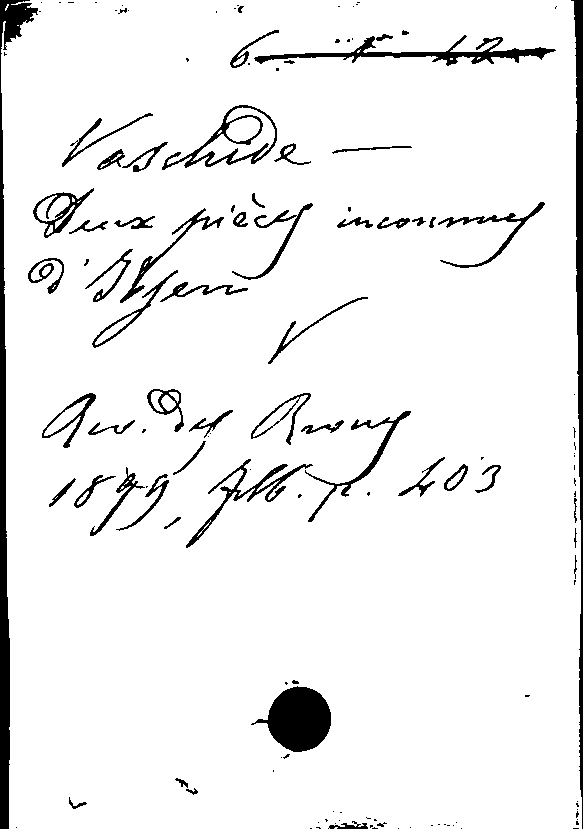 Vaschide —
Deux pièces inconnues
d'Ibsen
Rev. des Revues
1899, feb. p. 403